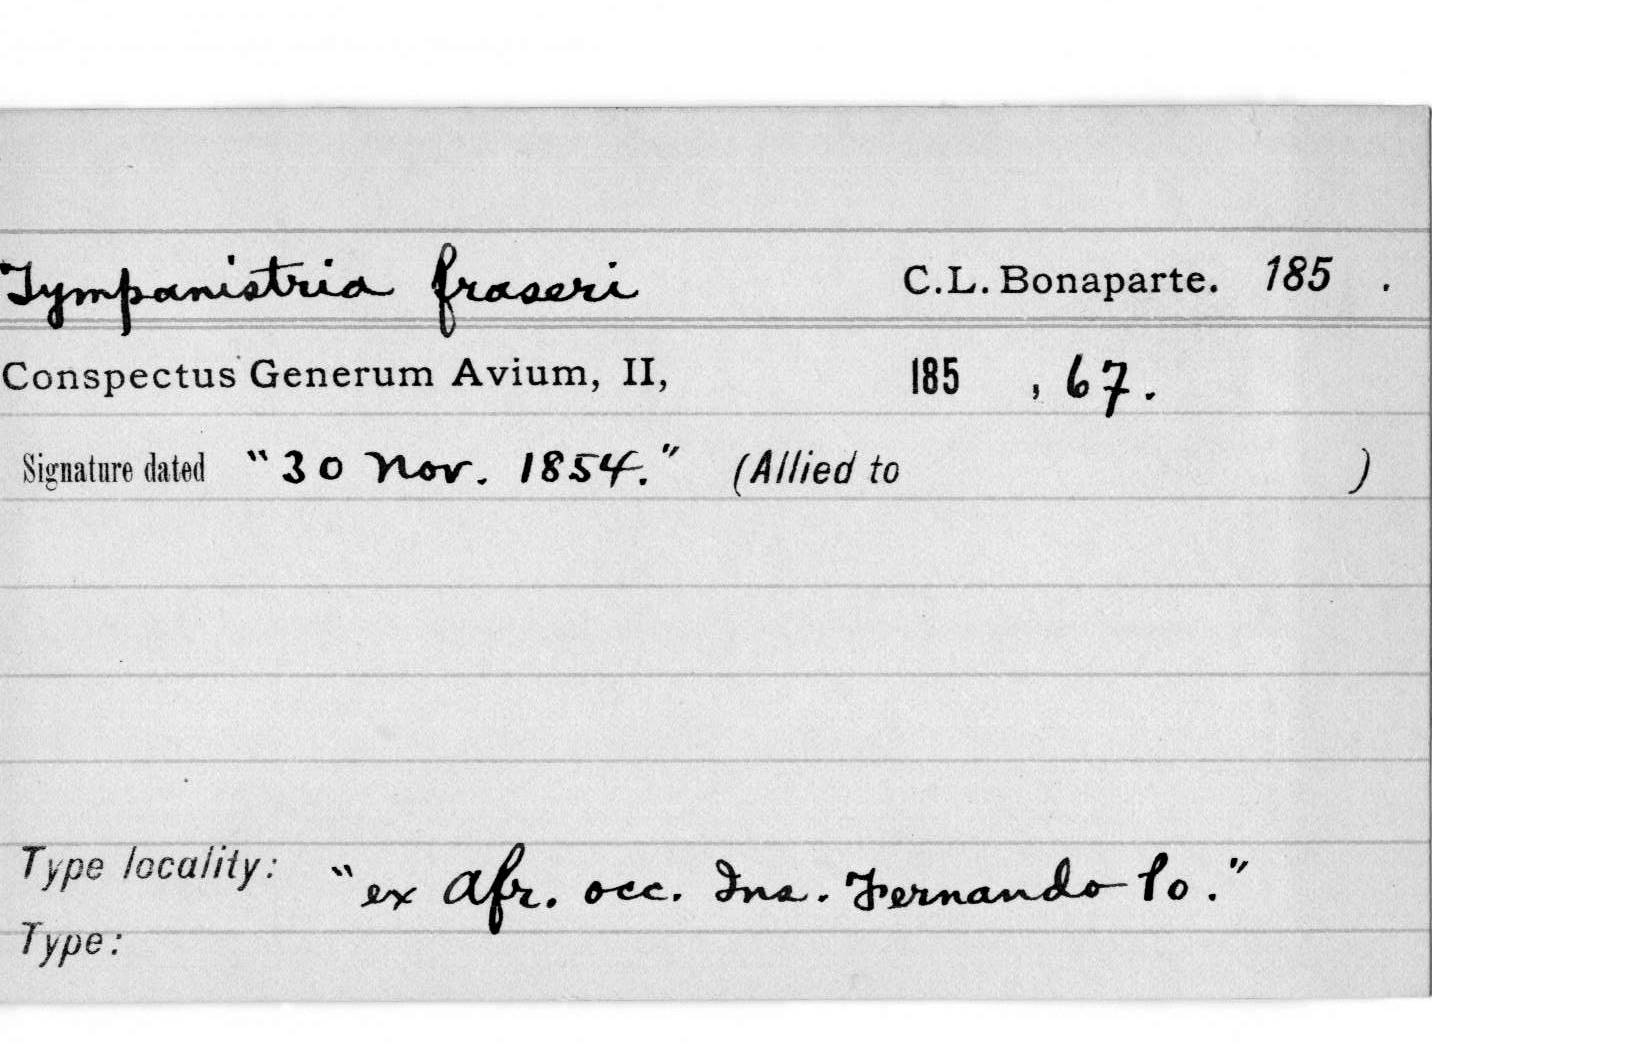 Tympanistria fraseri C.L. Bonaparte. 185 .
Conspectus Generum Avium, II, 185 , 67.
Signature dated "30 Nov. 1854." (Allied to )
Type locality: "ex Afr. occ. Ins. Fernando Po."
Type: